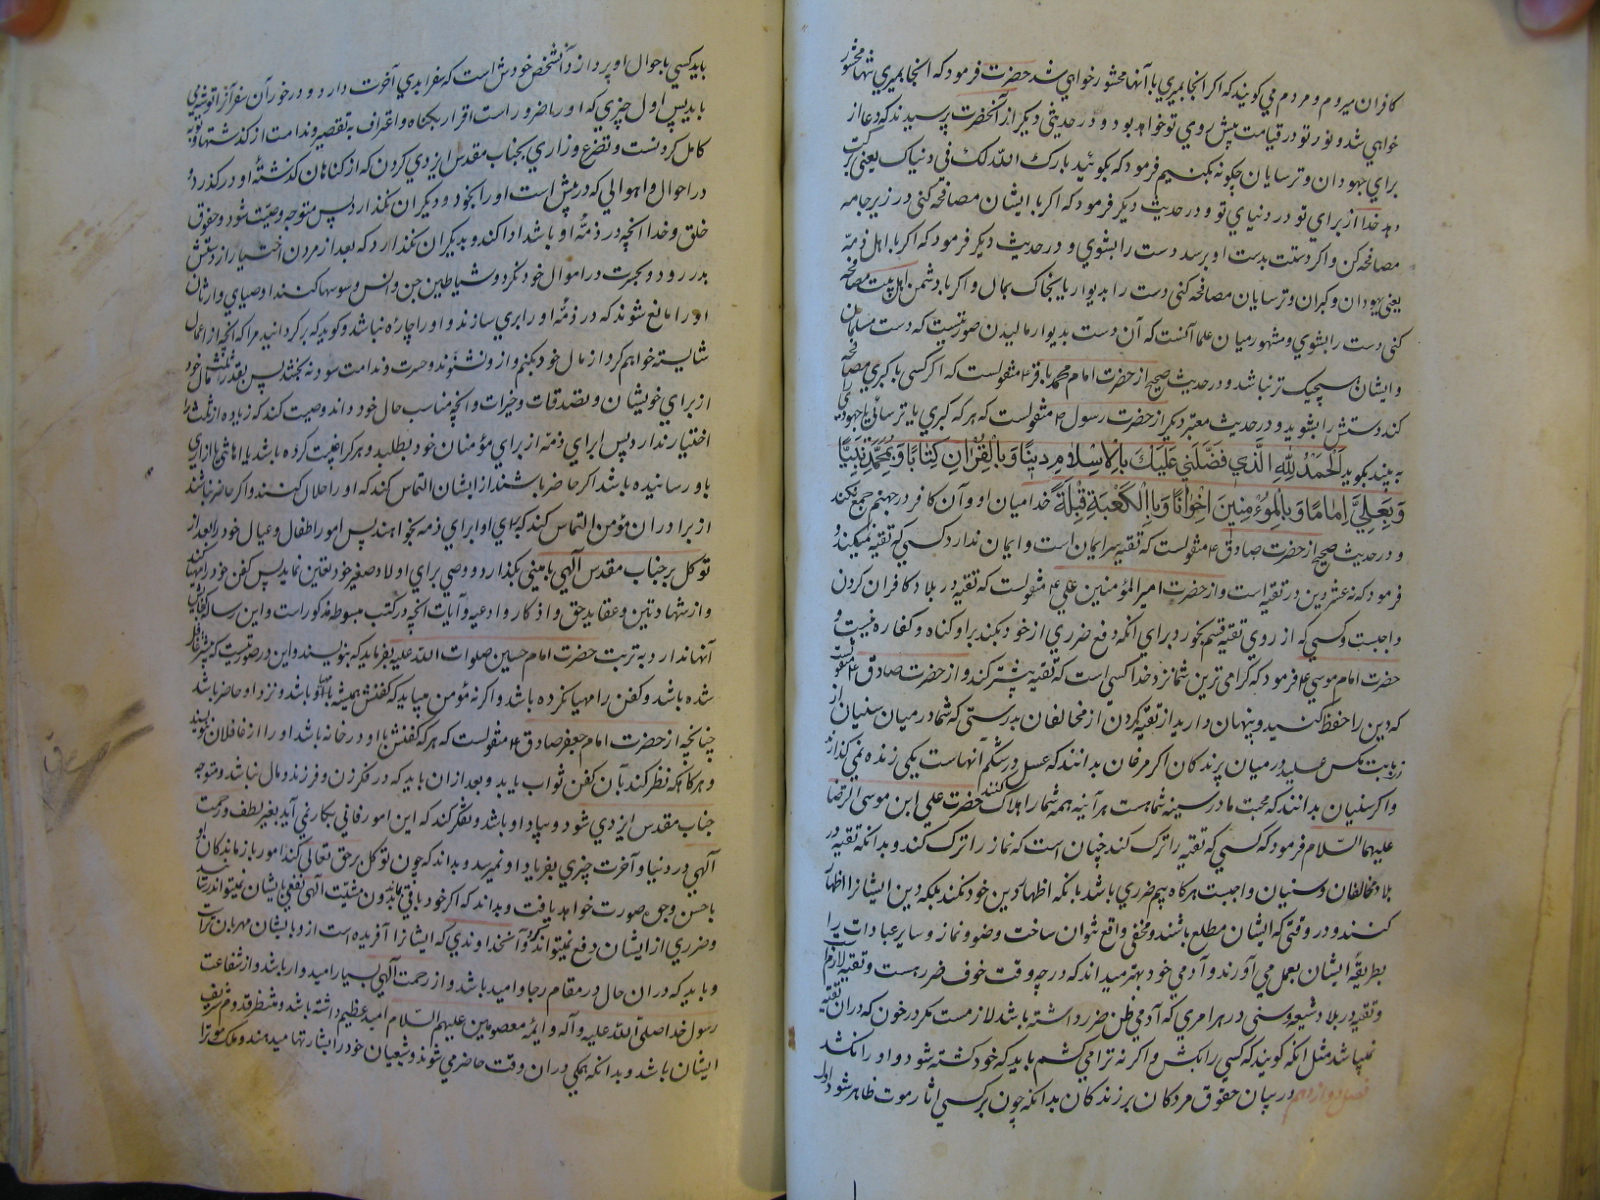 کافران میروم و مردم می کویند که اکر انجا بمیری با آنها محشور خواهی شد حضرت فرمود که اکر انجا بمیری تنها محشور
خواهی شد و نور تو در قیامت پیش روی تو خواهد بود و در حدیثی دیکر از آنحضرت پرسیدند که دعا از
برای جهودان و ترسایان چکونه بکنیم فرمود که بکوئید بارک الله لک فی دنیاک یعنی برکت
دهد خدا از برای تو در دنیای تو و در حدیث دیکر فرمود که اکر با ایشان مصافحه کنی در زیر جامه
مصافحه کن و اکر دستت بدست او برسد دست را بشوی و در حدیث دیکر فرمود که اکر با اهل ذمّه
یعنی یهودان و کبران و ترسایان مصافحه کنی دست را بدیوار یا بخاک بمال و اکر با دشمن اهل بیت مصافحه
کنی دست را بشوی و مشهور میان علما آنست که آن دست بدیوار مالیدن در صورتیست که دست مسلمان
و ایشان هیچیک تر نباشد و در حدیث صحیح از حضرت امام محمد باقر ع منقولست که اکر کسی با کبری مصافحه
کند دستش را بشوید و در حدیث معتبر دیکر از حضرت رسول ص منقولست که هر که کبری یا ترسائی یا جهودی را
به بیند بکوید اَلْحَمْدُ لِلّهِ الَّذی فَضَّلَنی عَلَیْکَ بِالْاِسْلامِ دینًا وَ بِالْقُرْآنِ کِتابًا وَ بِمُحَمَّدٍ نَبِیًّا
وَ بِعَلِیٍّ اِمامًا وَ بِالْمُؤْمِنینَ اِخْوانًا وَ بِالْکَعْبَةِ قِبْلَةً خدا میان او و آن کافر در جهنم جمع نکند
و در حدیث صحیح از حضرت صادق ع منقولست که تقیه سپر ایمان است و ایمان ندارد کسی که تقیه نمیکند و
فرمود که نه عشر دین در تقیه است و از حضرت امیر المؤمنین علی ع منقولست که تقیه در بلاد کافران کردن
واجبست و کسی که از روی تقیه قسم بخورد برای انکه دفع ضرری از خود بکند بر او کناه و کفاره نیست و
حضرت امام موسی ع فرمود که کرامی ترین شما نزد خدا کسی است که تقیه بیشتر کند و از حضرت صادق ع منقولست
که دین را حفظ کنید و پنهان دارید از تقیه کردن از مخالفان بدرستی که شما در میان سنیان از
بابت مکس عسلید در میان پرندکان اکر مرغان بدانند که عسل در شکم آنهاست یکی زنده نمی کذارند
و اکر سنیان بدانند که محبت ما در سینه شما هست هر آینه همه شما را هلاک کنند حضرت علی ابن موسی الرضا
علیهما السّلام فرمود که کسی که تقیه را ترک کند چنان است که نماز را ترک کند و بدانکه تقیه در
بلاد مخالفان و سنیان واجبست هر کاه بیم ضرری باشد بانکه اظهار دین خود نکند بلکه دین ایشانرا اظهار
کنند و در وقتی که ایشان مطلع باشند و مخفی واقع نتوان ساخت وضو و نماز و سایر عبادات را
بطریقۀ ایشان بعمل می آورند و آدمی خود بهتر میداند که در چه وقت خوف ضرر هست و تقیه لازمست
و تقیه در بلاد شیعه و سنی در هر امری که آدمی ظن ضرر داشته باشد لازمست مکر در خون که در ان تقیه
نمیباشد مثل انکه کویند که کسی را بکش و اکر نه ترا می کشم باید که خود کشته شود و او را نکشد
فصل دوازدهم در بیان حقوق مردکان بر زندکان بدانکه چون بر کسی اثار موت ظاهر شود اول
باید کسی باحوال او پردازد آن شخص خودش است که سفر ابدی آخرت دارد و در خور آن سفر آنرا توشه می
باید پس اول چیزی که او را ضرور است اقرار بکناه و اعتراف به تقصیر و ندامت از کذشتها و توبه
کامل کردنست و تضرع و زاری بجناب مقدس ایزدی کردن که از کناهان کذشتۀ او در کذرد و
در احوال و اهوالی که در پیش است او را بخود و دیکران نکذارد پس متوجه وصیّت شود و حقوق
خلق و خدا آنچه در ذمّۀ او باشد ادا کند و بدیکران نکذارد که بعد از مردن اختیار از دستش
بدر رود و بحسرت در اموال خود نکرد و شیاطین جن و انس وسوسها کنند اوصیای وارثان
او را مانع شوند که در ذمّه او را بری سازند و او را چارۀ نباشد و کوید که بر کردانید مرا که آنچه از اعمال
شایسته خواهم کرد از مال خود بکنم و از و نشنوند و حسرت و ندامت سود نه بخشد پس بقدر ثلث مال خود
از برای خویشان و تصدقات و خیرات و آنچه مناسب حال خود داند وصیت کند که زیاده از ثلث را
اختیار ندارد پس ابرای ذمّه از برای مؤمنان خود بطلبد و هر کرا غیبت کرده باشد یا اهانتی یا آزاری
باو رسانیده باشد اکر حاضر باشند از ایشان التماس کند که او را حلال کنند و اکر حاضر نباشند
از برادران مؤمن التماس کند که برای او ابرای ذمه بخواهند پس امور اطفال و عیال خود را بعد از
توکل بر جناب مقدس آلهی بامینی بکذارد و وصی برای اولاد صغیر خود تعیین نماید پس کفن خود را مهیا کند
و از شهادتین و عقاید حق و اذکار و ادعیه و آیات آنچه در کتب مبسوطه مذکور است و این رساله کنجایش
آنها ندارد به تربت حضرت امام حسین صلوات الله علیه بفرماید که بنویسند و این در صورتیست که پیشتر غافل
شده باشد و کفن را مهیا نکرده باشد و اکر نه مؤمن میباید که کفنش همیشه با او باشد و نزد او حاضر باشد
چنانچه از حضرت امام جعفر صادق ع منقولست که هر که کفنش با او در خانه باشد او را از غافلان ننویسند
و هر کاه که نظر کند بآن کفن ثواب یابد و بعد از ان باید که در فکر زن و فرزند و مال نباشد و متوجه
جناب مقدس ایزدی شود و بیاد او باشد و تفکر کند که این امور فانی بکار نمی آید بغیر لطف و رحمت
آلهی در دنیا و آخرت چیزی بفریاد او نمیرسد و بداند که چون توکل بر حق تعالی کند امور بازماندکان او
باحسن وجوه صورت خواهد یافت و بداند که اکر خود باقی بماند بدون مشیّت آلهی نفعی بایشان نمیتواند رسانید
و ضرری از ایشان دفع نمیتواند کرد و آنخداوندی که ایشانرا آفریده است از و بایشان مهربان تراست
و باید که در ان حال در مقام رجا و امید باشد و از رحمت آلهی بسیار امیدوار باشد و از شفاعت
رسول خدا صلی الله علیه و آله و ایمّه معصومین علیهم السّلام امید عظیم داشته باشد و منتظر قدوم شریف
ایشان باشد و بدانکه همکی در ان وقت حاضر می شوند و شیعیان خود را بشارتها میدهند و ملک موت را